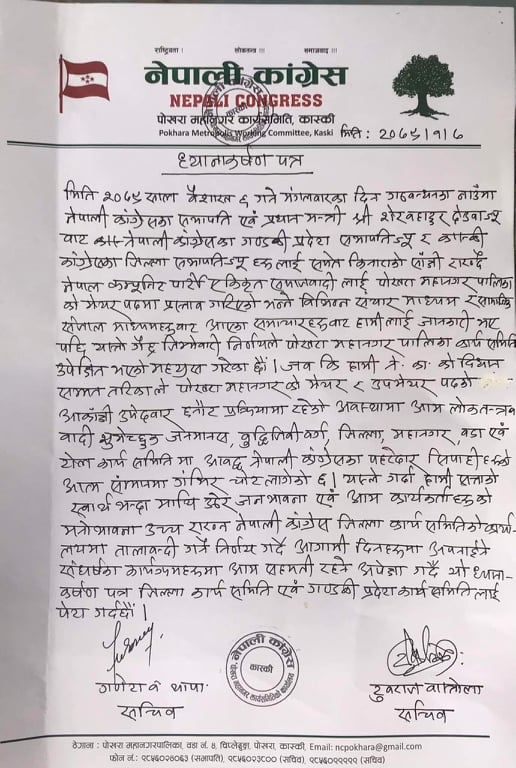 राष्ट्रियता । लोकतन्त्र !!! समाजवाद !!!
नेपाली कांग्रेस
NEPALI CONGRESS
पोखरा महानगर कार्यसमिति, कास्की
Pokhara Metropolis Working Committee, Kaski
मिति : २०७९।१।७
ध्यानाकर्षण पत्र
मिति २०७९ साल वैशाख ६ गते मंगलवारका दिन गठबन्धनका नाउँमा
नेपाली कांग्रेसका सभापति एवं प्रधान मन्त्री श्री शेरवहादुर देउवाज्यू
वाट नेपाली कांग्रेसका गण्डकी प्रदेश सभापतिज्यू र कास्की
कांग्रेसका जिल्ला सभापतिज्यू हरु लाई समेत किनाराको साँक्षी राख्दै
नेपाल कम्युनिष्ट पार्टी एकिकृत समाजवादी लाई पोखरा महानगर पालिका
को मेयर पदमा प्रस्ताव गरिएको भन्ने विभिन्न संचार माध्यम र सामाजिक
संजाल माध्यमहरुवाट आएका समाचारहरुवाट हामीलाई जानकारी भए
पछि यस्तो गैह्र जिम्मेवारी निर्णयले पोखरा महानगर पालिका कार्य समिति
उपेक्षित भएको महशुस गरेका छौं। जव कि हामी ने. का. को विधान
सम्मत तरिकाले पोखरा महानगरको मेयर र उपमेयर पदको
आकांक्षी उमेदवार छनौट प्रक्रियामा रहेको अवस्थामा आम लोकतन्त्र
वादी शुभेच्छुक जनमानस, वुद्धिजिवी वर्ग, जिल्ला, महानगर, वडा एवं
टोल कार्य समिति मा आवद्ध नेपाली कांग्रेसका पहरेदार सिपाही हरुको
आत्म सम्मानमा गंभिर चोट लागेको छ। यसले गर्दा हामी सत्ताको
स्वार्थ भन्दा माथि उठेर जनभावना एवं आम कार्यकर्ताहरुको
मनोभावना उच्च राख्न नेपाली कांग्रेस जिल्ला कार्य समितिको कार्या-
लयमा तालावन्दी गर्ने निर्णय गर्दै आगामी दिनहरुमा अपनाईने
संघर्षका कार्यक्रमहरुमा आम सहमती रहने अपेक्षा गर्दै यो ध्याना-
कर्षण पत्र जिल्ला कार्य समिति एवं गण्डकी प्रदेश कार्य समितिलाई
पेश गर्दछौं।
नेपाली कांग्रेस
कास्की
गणेश व. थापा
सचिव
युवराज वाग्तोला
सचिव
ठेगाना : पोखरा महानगरपालिका, वडा नं. ८, चिप्लेढुङ्गा, पोखरा, कास्की, Email: ncpokhara@gmail.com
फोन नं.: ९८५६०२८०६३ (सभापति), ९८५६०२३८०० (सचिव), ९८५६०११११२ (सचिव)